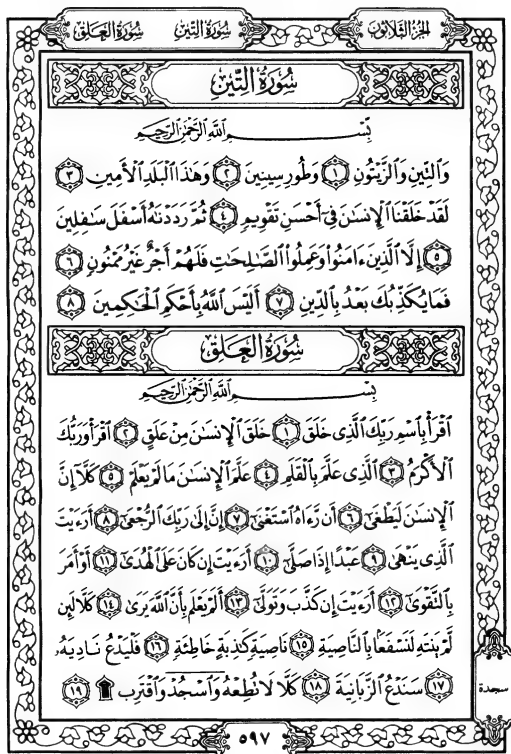 الجزء الثلاثون
سورة التين
سورة العلق
سُورَةُ التِّينِ
بِسْمِ ٱللَّهِ ٱلرَّحْمَٰنِ ٱلرَّحِيمِ
وَٱلتِّينِ وَٱلزَّيْتُونِ ١ وَطُورِ سِينِينَ ٢ وَهَٰذَا ٱلْبَلَدِ ٱلْأَمِينِ ٣
لَقَدْ خَلَقْنَا ٱلْإِنسَٰنَ فِىٓ أَحْسَنِ تَقْوِيمٍ ٤ ثُمَّ رَدَدْنَٰهُ أَسْفَلَ سَٰفِلِينَ
٥ إِلَّا ٱلَّذِينَ ءَامَنُوا۟ وَعَمِلُوا۟ ٱلصَّٰلِحَٰتِ فَلَهُمْ أَجْرٌ غَيْرُ مَمْنُونٍ ٦
فَمَا يُكَذِّبُكَ بَعْدُ بِٱلدِّينِ ٧ أَلَيْسَ ٱللَّهُ بِأَحْكَمِ ٱلْحَٰكِمِينَ ٨
سُورَةُ العَلَقِ
بِسْمِ ٱللَّهِ ٱلرَّحْمَٰنِ ٱلرَّحِيمِ
ٱقْرَأْ بِٱسْمِ رَبِّكَ ٱلَّذِى خَلَقَ ١ خَلَقَ ٱلْإِنسَٰنَ مِنْ عَلَقٍ ٢ ٱقْرَأْ وَرَبُّكَ
ٱلْأَكْرَمُ ٣ ٱلَّذِى عَلَّمَ بِٱلْقَلَمِ ٤ عَلَّمَ ٱلْإِنسَٰنَ مَا لَمْ يَعْلَمْ ٥ كَلَّآ إِنَّ
ٱلْإِنسَٰنَ لَيَطْغَىٰٓ ٦ أَن رَّءَاهُ ٱسْتَغْنَىٰٓ ٧ إِنَّ إِلَىٰ رَبِّكَ ٱلرُّجْعَىٰٓ ٨ أَرَءَيْتَ
ٱلَّذِى يَنْهَىٰ ٩ عَبْدًا إِذَا صَلَّىٰٓ ١٠ أَرَءَيْتَ إِن كَانَ عَلَى ٱلْهُدَىٰٓ ١١ أَوْ أَمَرَ
بِٱلتَّقْوَىٰٓ ١٢ أَرَءَيْتَ إِن كَذَّبَ وَتَوَلَّىٰٓ ١٣ أَلَمْ يَعْلَم بِأَنَّ ٱللَّهَ يَرَىٰ ١٤ كَلَّا لَئِن
لَّمْ يَنتَهِ لَنَسْفَعًۢا بِٱلنَّاصِيَةِ ١٥ نَاصِيَةٍ كَٰذِبَةٍ خَاطِئَةٍ ١٦ فَلْيَدْعُ نَادِيَهُۥ
١٧ سَنَدْعُ ٱلزَّبَانِيَةَ ١٨ كَلَّا لَا تُطِعْهُ وَٱسْجُدْ وَٱقْتَرِب ۩ ١٩
سجدة
٥٩٧